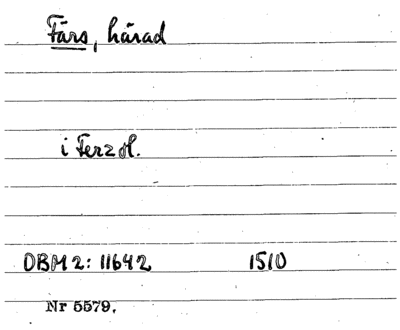 Färs, härad
i Ferz H.
DBM 2: 11642 1510
Nr 5579.